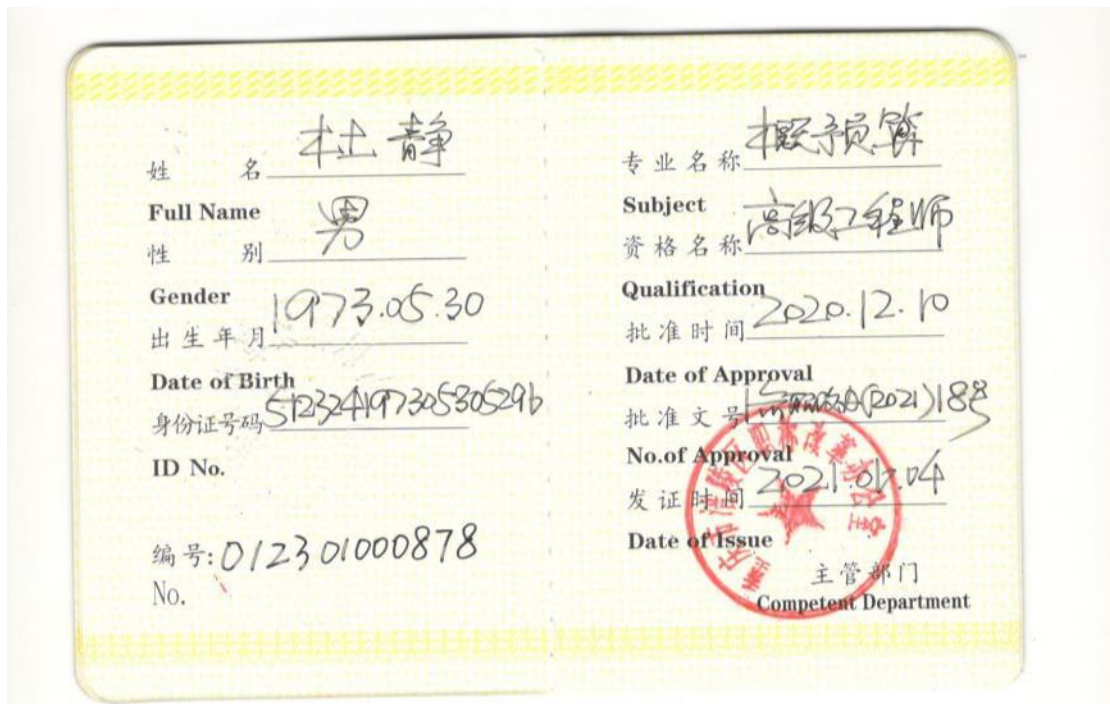 姓名 杜静
Full Name
性别 男
Gender
出生年月 1973.05.30
Date of Birth
身份证号码 512324197305305296
ID No.
编号: 012301000878
No.
专业名称 概预算
Subject
资格名称 高级工程师
Qualification
批准时间 2020.12.10
Date of Approval
批准文号 (2021)18号
No.of Approval
发证时间 2021.01.04
Date of Issue
主管部门
Competent Department
重庆市涪陵区职称改革办公室